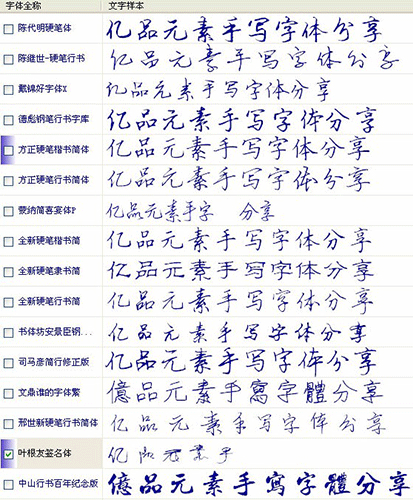 字体全称 文字样本
陈代明硬笔体 亿品元素手写字体分享
陈继世-硬笔行书 亿品元素手写字体分享
戴锦好字体X 亿品元素手写字体分享
德彪钢笔行书字库 亿品元素手写字体分享
方正硬笔楷书简体 亿品元素手写字体分享
方正硬笔行书简体 亿品元素手写字体分享
蒙纳简喜宴体P 亿品元素手字 分享
全新硬笔楷书简 亿品元素手写字体分享
全新硬笔隶书简 亿品元素手写字体分享
全新硬笔行书简 亿品元素手写字体分享
书体坊安景臣钢... 亿品元素手写字体分享
司马彦简行修正版 亿品元素手写字体分享
文鼎谁的字体繁 億品元素手寫字體分享
邢世新硬笔行书简体 亿品元素手写字体分享
叶根友签名体 亿 元素手
中山行书百年纪念版 億品元素手寫字體分享